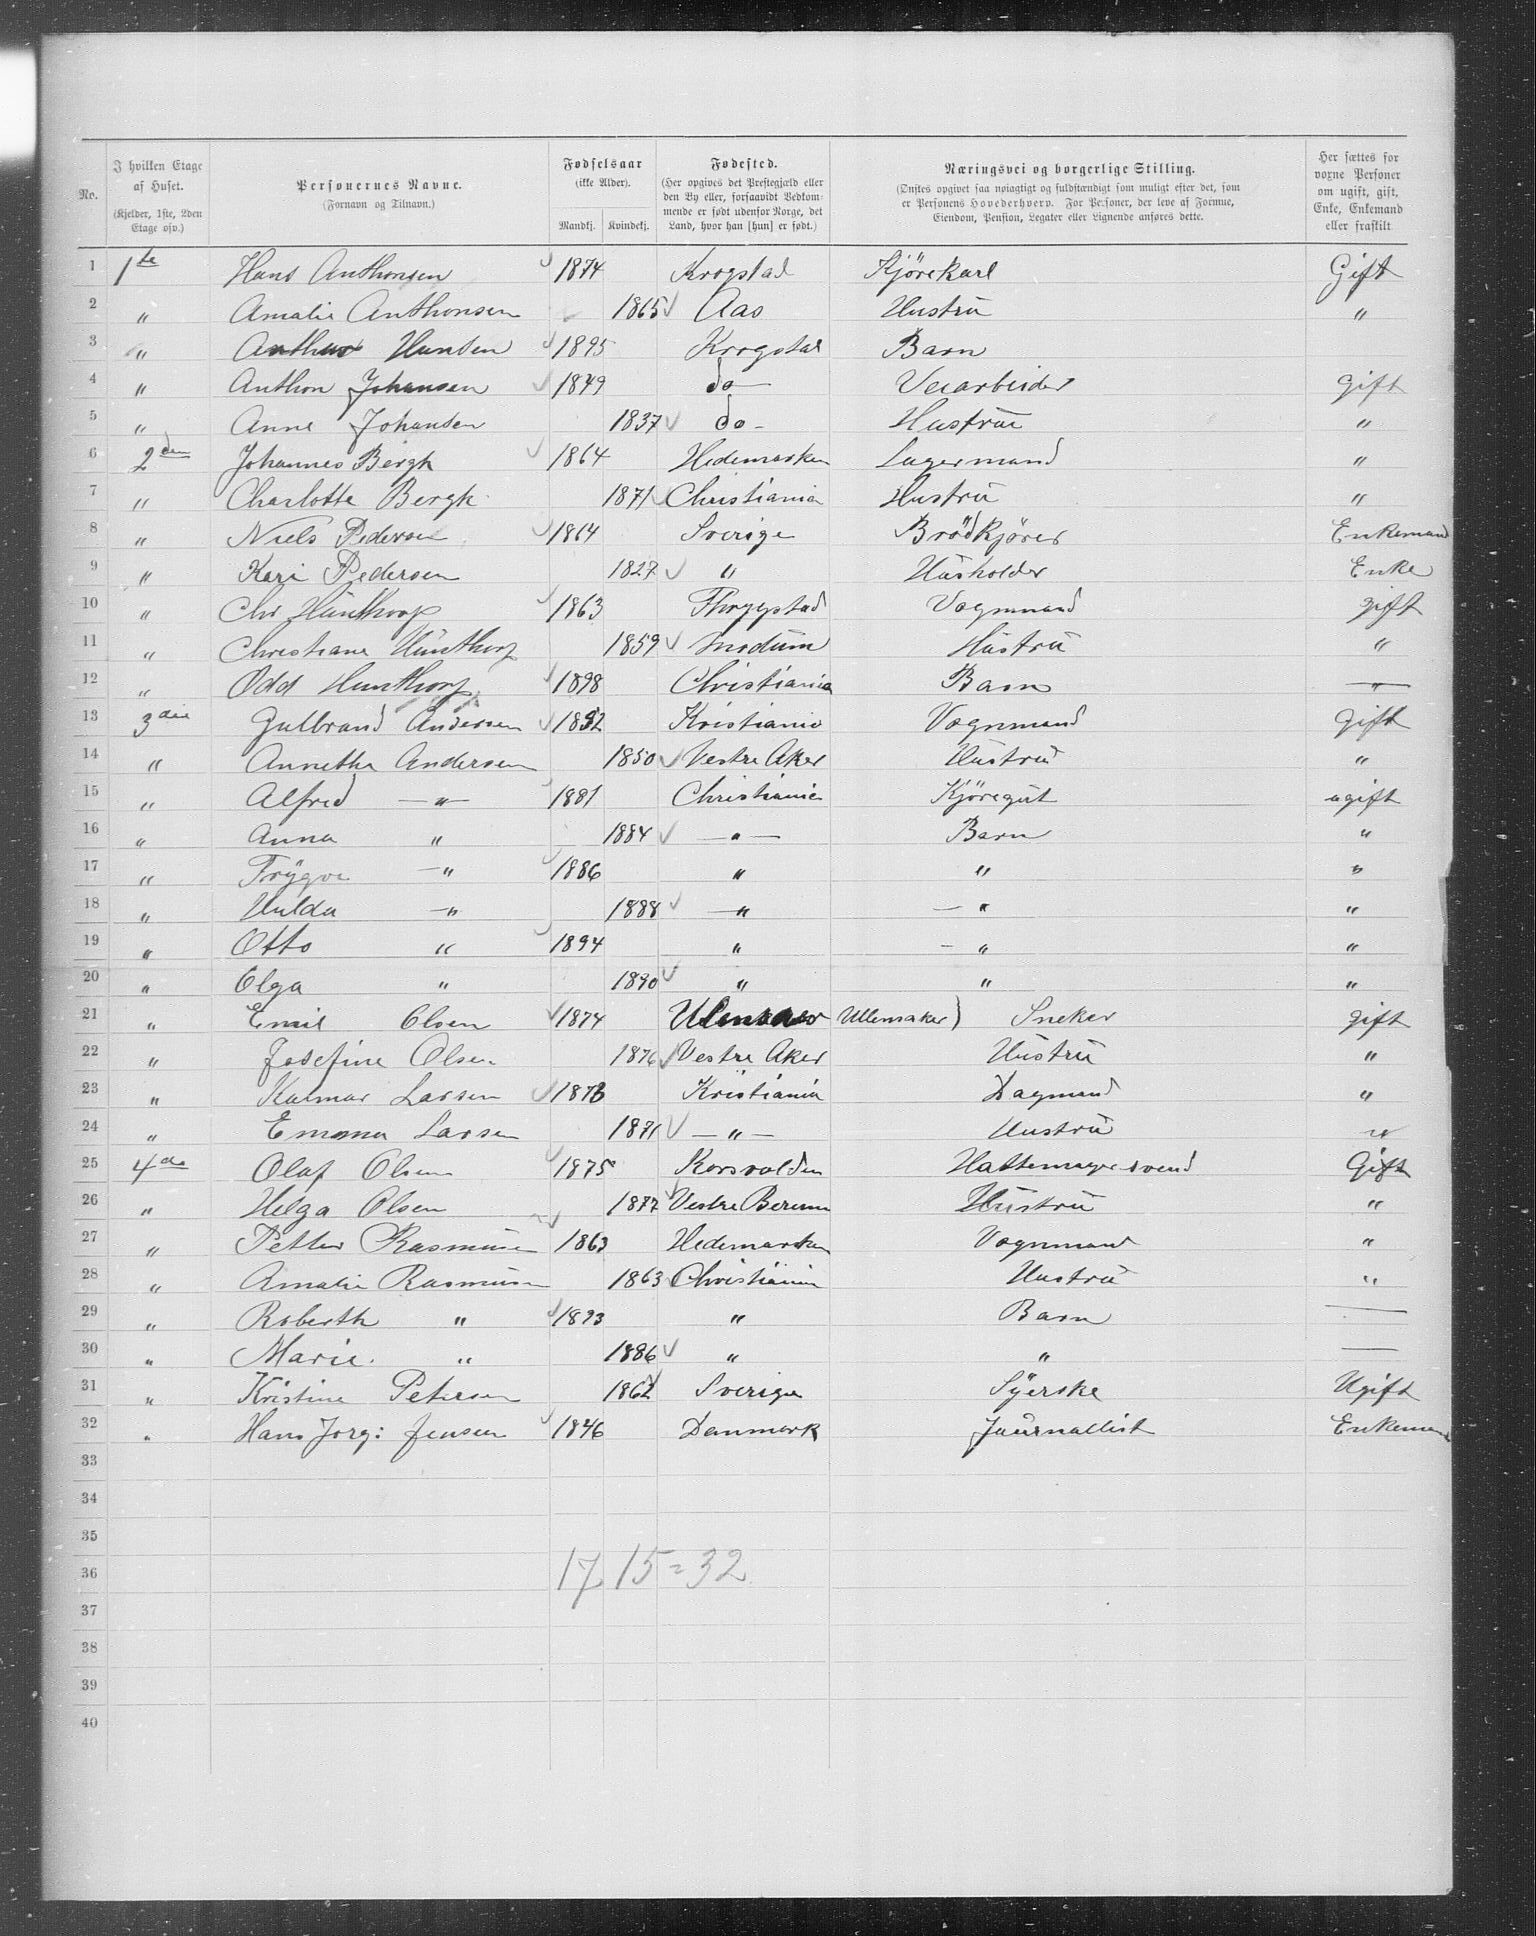 No. I hvilken Etage af Huset. (Kjelder, 1ste, 2den Etage osv.) Personernes Navne. (Fornavn og Tilnavn.) Fødselsaar (ikke Alder). Mandkj. Kvindekj. Fødested. (Her opgives det Prestegjæld eller den By eller, forsaavidt Vedkommende er født udenfor Norge, det Land, hvor han [hun] er født.) Næringsvei og borgerlige Stilling. (Ønstes opgivet saa nøiagtigt og fuldstændigt som muligt efter det, som er Personens Hovederhverv. For Personer, der leve af Formue, Eiendom, Pension, Legater eller Lignende anføres dette. Her sættes for voxne Personer om ugift, gift, Enke, Enkemand eller fraskilt
1 1te Hans Anthonsen 1874 Krogstad Kjörekarl Gift
2 " Amalie Anthonsen 1865 Aas Hustru "
3 " Hansen 1895 Krogstad Barn
4 " Anthon Johansen 1849 do Veiarbeider gift
5 " Anne Johansen 1837 do Hustru "
6 2den Johannes Bergh 1864 Hedemarken Lagermand "
7 " Charlotte Bergh 1871 Christiania Hustru "
8 " Niels Pedersen 1864 Sverige Brödkjörer Enkemand
9 " Kari Pedersen 1827 " Husholder Enke
10 " Chr. Hunthorp 1863 Thrygstad Vognmand gift
11 " Christiane Hunthorp 1859 Modum Hustru "
12 " Odd Hunthorp 1898 Christiania Barn "
13 3die Gulbrand Andersen 1852 Kristiania Vognmand gift
14 " Annetha Andersen 1850 Vestre Aker Hustru "
15 " Alfred " 1881 Christiania Kjöregut ugift
16 " Anna " 1884 " Barn "
17 " Trygve " 1886 " " "
18 " Hulda " 1888 " " "
19 " Otto " 1894 " " "
20 " Olga " 1890 " " "
21 " Emil Olsen 1874 Ullensaker) Sneker gift
22 " Josefine Olsen 1876 Vestre Aker Hustru "
23 " Kalmar Larsen 1873 Kristiania Dagmand "
24 " Emma Larsen 1871 " Hustru "
25 4de Olaf Olsen 1875 Korsvolden Hattemagersvend Gift
26 " Helga Olsen 1877 Vestre Berum Hustru "
27 " Petter Rasmusen 1863 Hedemarken Vognmand "
28 " Amalie Rasmusen 1863 Christiania Hustru "
29 " Roberth " 1893 " Barn —
30 " Marie " 1886 " " —
31 " Kristine Petersen 1862 Sverige Syerske Ugift
32 " Hans Jorg: Jensen 1846 Danmark Journallist Enkemand
33
34
35
36 17 15 = 32
37
38
39
40